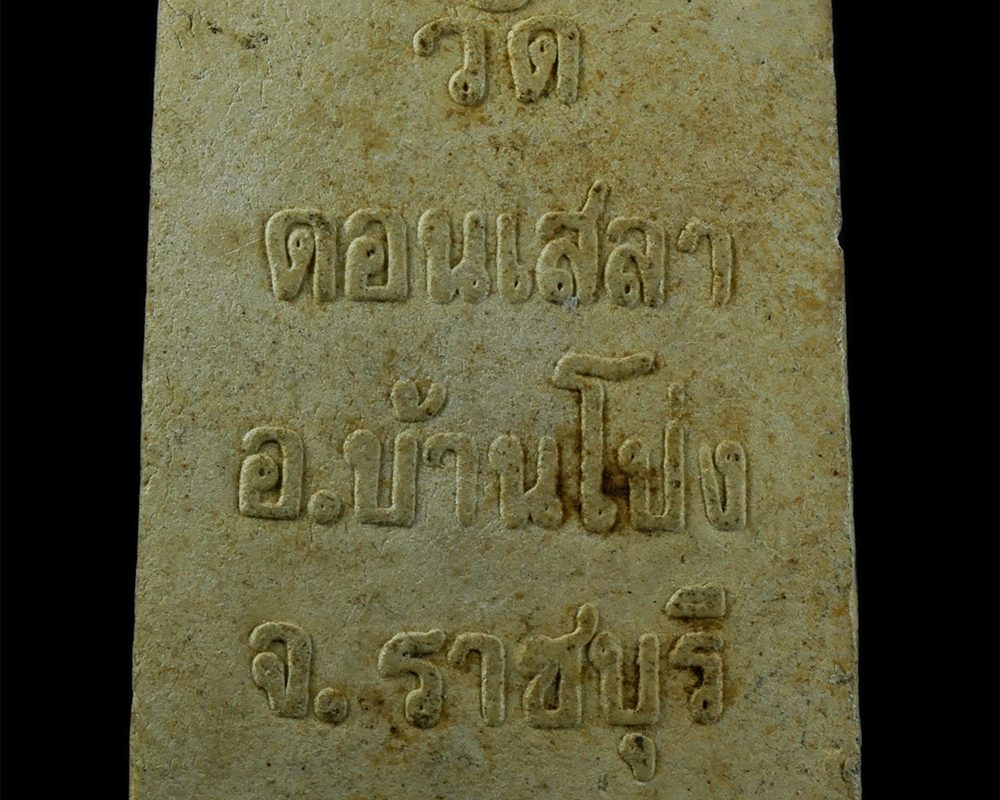 วัด
ดอนเสลา
อ.บ้านโป่ง
จ.ราชบุรี